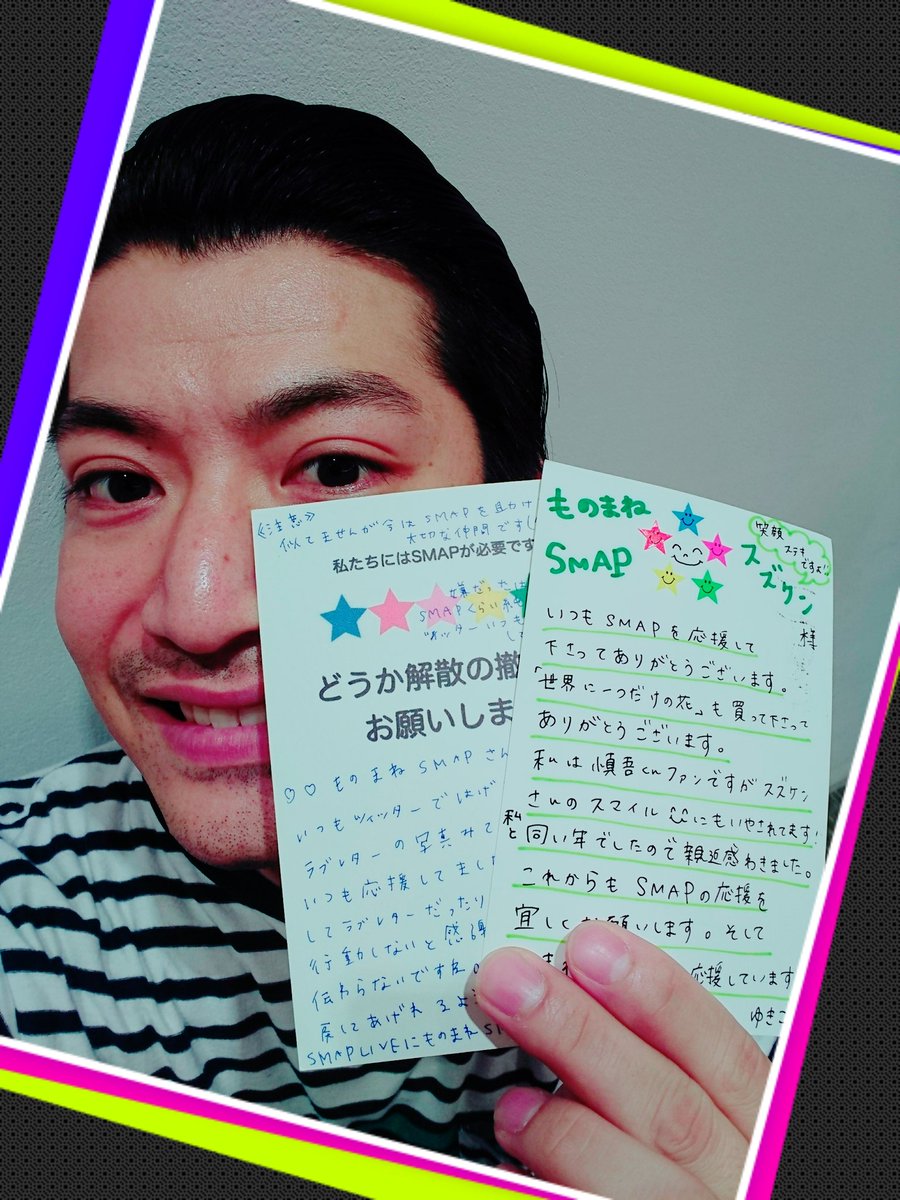 《注意》
似てませんが今はSMAPを助け
大切な仲間です
私たちにはSMAPが必要です
SMAPくらい
どうか解散の撤
お願いしま
♡♡ものまねSMAPさん
いつもツイッターではげ
ラブレターの写真みて
いつも応援してました
してラブレターだったり
行動しないと感謝
伝わらないですね
戻してあげれるよ
SMAP LIVEにものまね
ものまね
SMAP
笑顔
ステキ
ですよ
スズケン
様
いつもSMAPを応援して
下さってありがとうございます。
「世界に一つだけの花」も買って下さって
ありがとうございます。
私は慎吾くんファンですがスズケン
さんのスマイルにもいやされてます!
私と同い年でしたので親近感わきました。
これからもSMAPの応援を
宜しくお願いします。そして
応援しています
ゆきこ